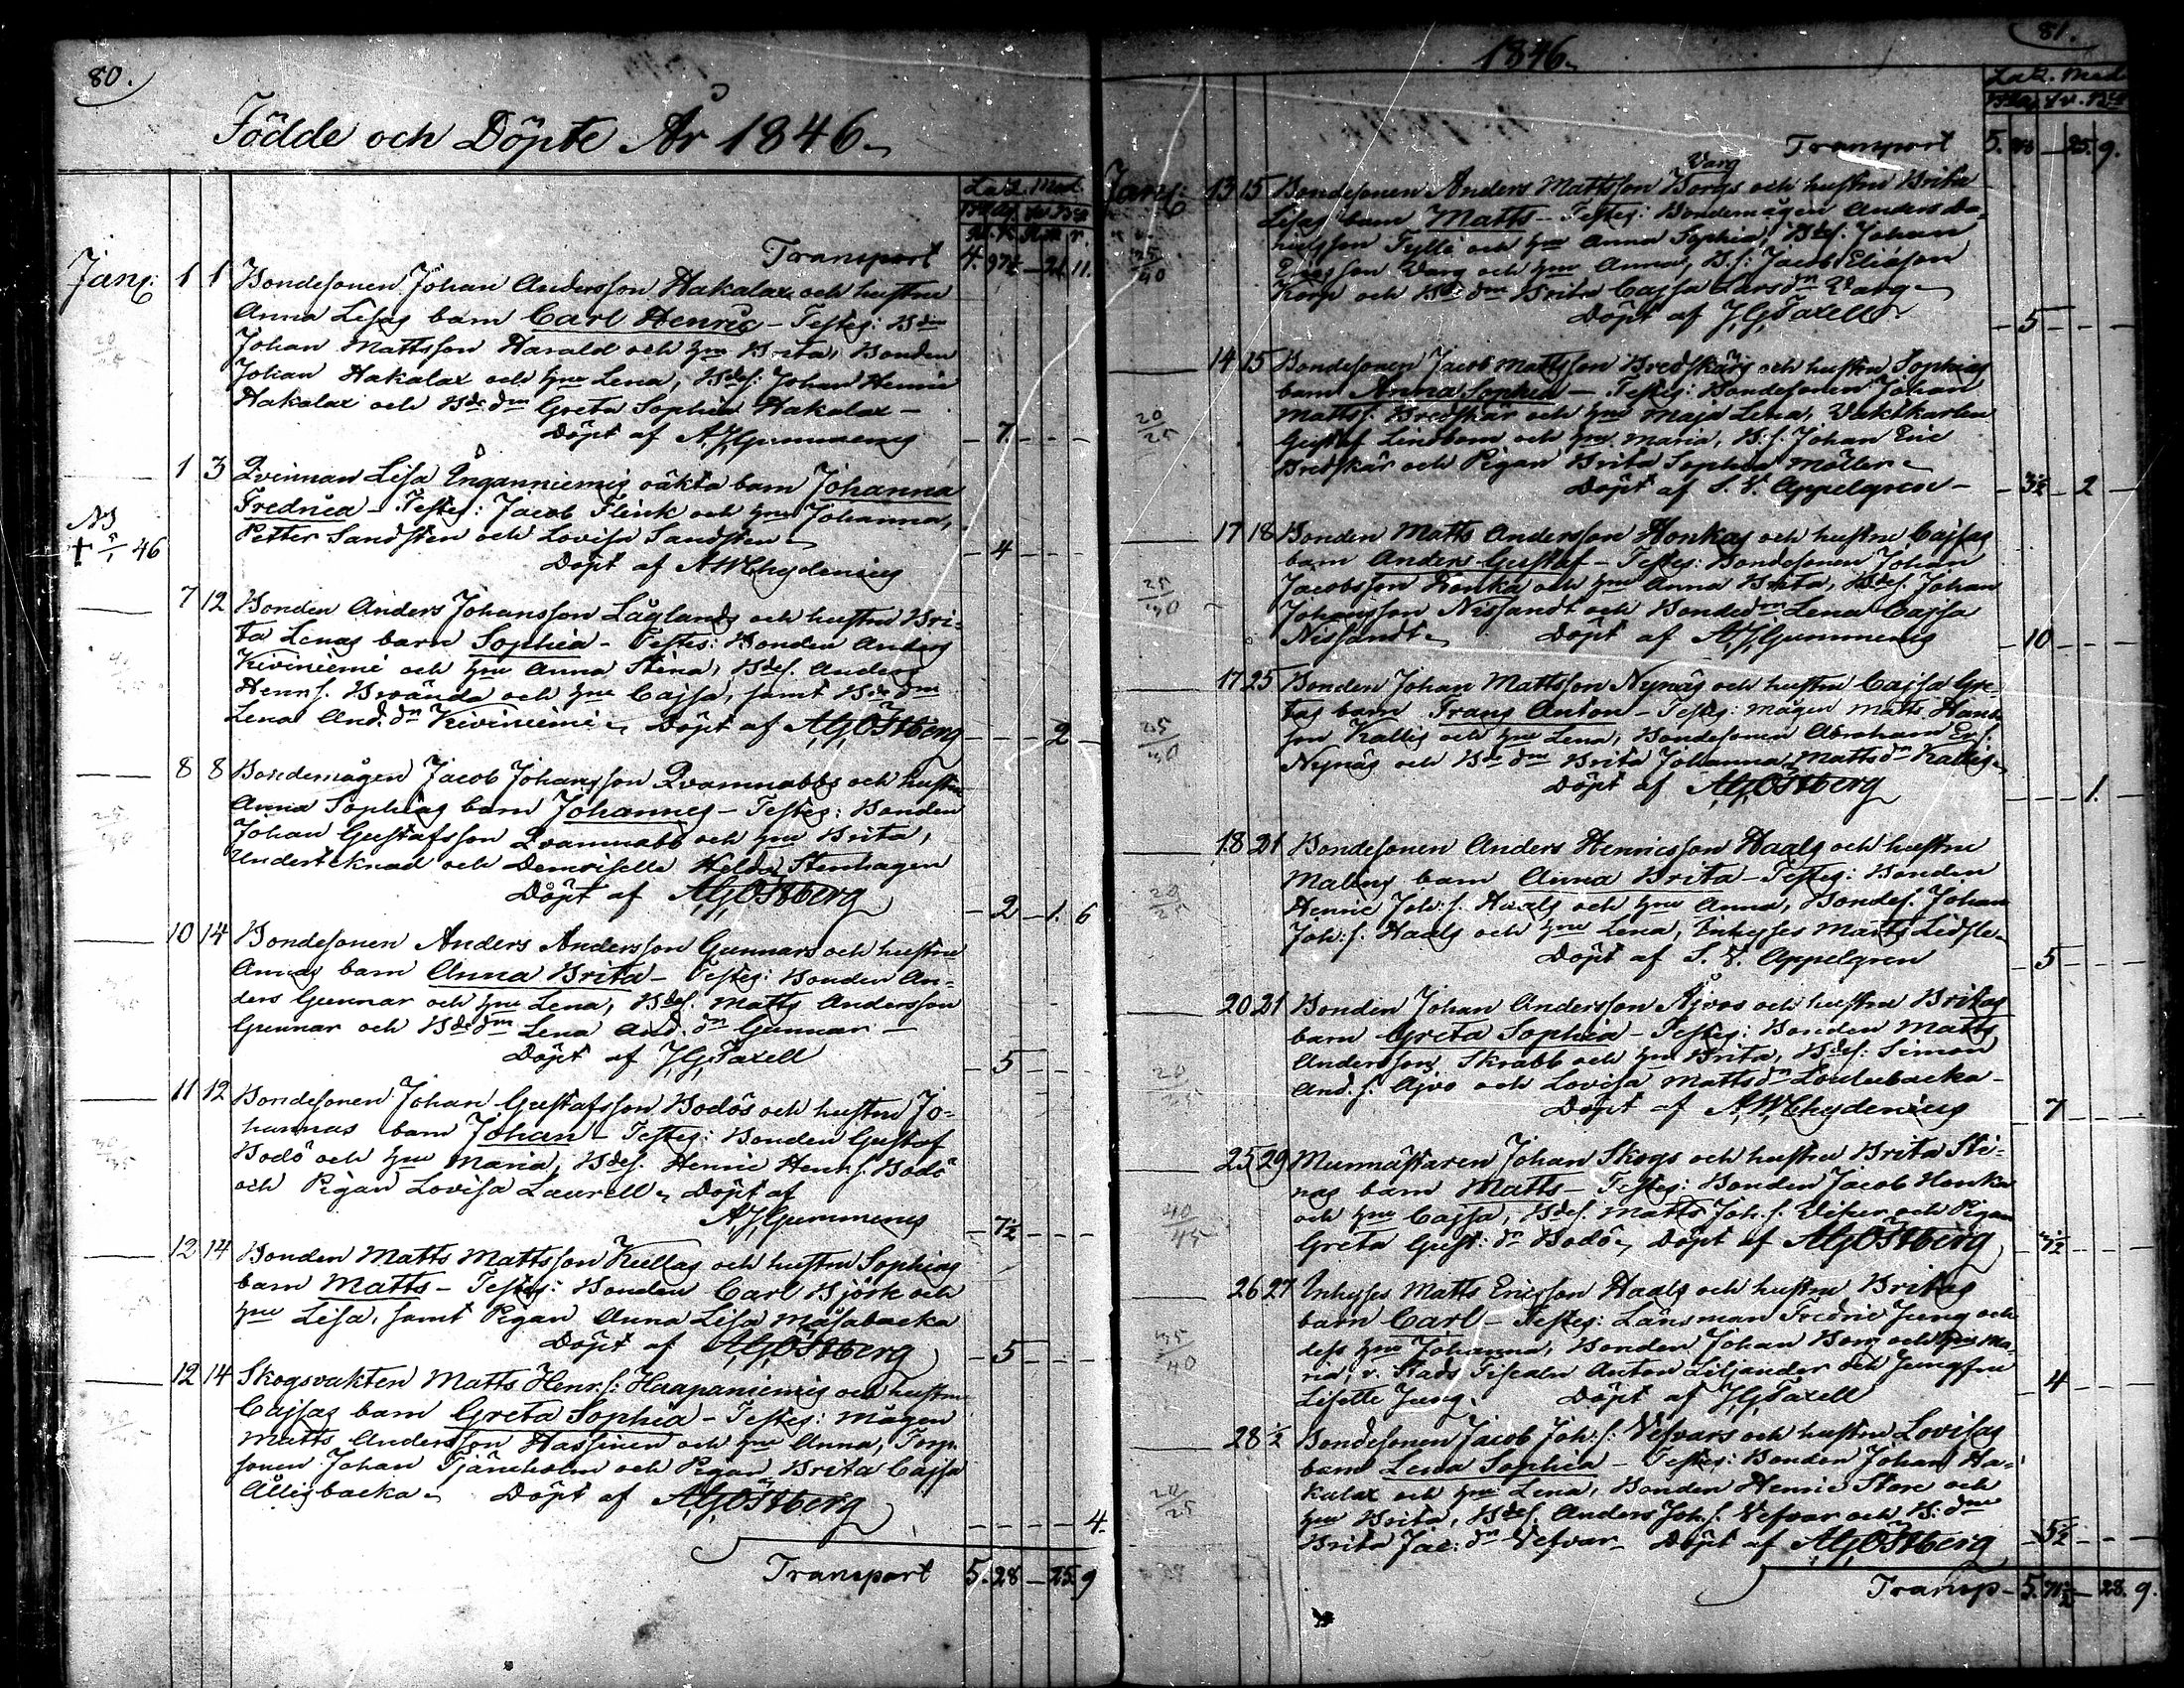 80.
Födde och Döpte År 1846
Transport 4. 97½ – 24. 11.
Janu: 1 1 Bondesonen Johan Andersson Hakalax och hustru
Anna Lisas barn Carl Henric – Testes: Bden
Johan Mattsson Harald och hu Brita, Bonden
Johan Hakalax och hu Lena, Bdes: Johan Henric
Hakalax och Bde dn Greta Sophia Hakalax –
Döpt af AJGummerus – 7 – – –
1 3 Qvinnan Lisa Inganniemis oäkta barn Johanna
Fredrica – Testes: Jacob Flink och hu Johanna,
Petter Sandsten och Lovisa Sandsten
Döpt af AWChydenius – 4 – – –
NB
† 5/1 46
7 12 Bonden Anders Johansson Låglands och hustru Bri-
ta Lenas barn Sophia – Testes: Bonden Anders
Kiviniemi och hu Anna Stina, Bdes. Anders
Henr. s. Brända och hu Cajsa, samt Bde dn
Lena And. dn Kiviniemi – Döpt af AGÖstberg – – – 2 –
8 8 Bondemågen Jacob Johansson Qvarnnabbs och hustru
Anna Sophias barn Johannes – Testes: Bonden
Johan Gustafsson Qvarnnabb och hu Brita,
Undertecknad och Demoiselle Helda Stenhagen
Döpt af AGÖstberg – 2 – 1. 6
10 14 Bondesonen Anders Andersson Gunnars och hustru
Annas barn Anna Brita – Testes: Bonden An-
ders Gunnar och hu Lena, Bdes. Matts Andersson
Gunnar och Bde dn Lena And. dn Gunnar –
Döpt af JGTaxell – 5 – – –
11 12 Bondesonen Johan Gustafsson Bodös och hustru Jo-
hannas barn Johan – Testes: Bonden Gustaf
Bodö och hu Maria, Bdes. Henric Henr. s. Bodö
och Pigan Lovisa Laurell – Döpt af
AJGummerus – 7½ – – –
12 14 Bonden Matts Mattsson Kullas och hustru Sophias
barn Matts – Testes: Bonden Carl Björk och
hu Lisa, samt Pigan Anna Lisa Måsabacka
Döpt af AGÖstberg – 5 – – –
12 14 Skogsvakten Matts Henr. s: Haapaniemis och hustru
Cajsas barn Greta Sophia – Testes: Mågen
Matts Andersson Hassinen och hu Anna, Torp-
sonen Johan Tjäruholm och Pigan Brita Cajsa
Ållisbacka – Döpt af AGÖstberg – – – – 4.
Transport 5. 28 – 25. 9
81.
1846
Transport 5. 28 – 25. 9.
Varg
Janu: 13 15 Bondesonen Anders Mattsson Borgs och hustru Brita
Lisas barn Matts – Testes: Bondemågen Anders Da-
nielsson Fylle och hu Anna Sophia, Bdes: Johan
Ericsson Varg och hu Anna, B. s: Jacob Eliasson
Korp och Bde dn Brita Cajsa Lars dn Varg –
Döpt af JGTaxell – 5 – – –
14 15 Bondesonen Jacob Mattsson Bredskärs och hustru Sophias
barn Anna Sophia – Testes: Bondesonen Johan
Matts s. Bredskär och hu Maja Lena, Vaktkarlen
Gustaf Lindbom och hu Maria, B. s. Johan Eric
Bredskär och Pigan Brita Sophia Möller –
Döpt af S. V. Appelgren – 3½ – 2 –
17 18 Bonden Matts Andersson Honkas och hustru Cajsas
barn Anders Gustaf – Testes: Bondesonen Johan
Jacobsson Honka och hu Anna Brita, Bdes. Johan
Johansson Nissandt och Bondedn Lena Cajsa
Nissandt – Döpt af AJGummerus – 10 – – –
17 25 Bonden Johan Mattsson Nynäs och hustru Cajsa Gre-
tas barn Frans Anton – Testes: Mågen Matts Hans-
son Kallis och hu Lena, Bondesonen Abraham Er. s.
Nynäs och Bde dn Brita Johanna Matts dn Kallis –
Döpt af AGÖstberg – – – 1. –
18 21 Bondesonen Anders Henricsson Haals och hustru
Malins barn Anna Brita – Testes: Bonden
Henric Joh: s. Haals och hu Anna, Bondes. Johan
Joh: s. Haals och hu Lena, Inhyses Marts Lidsle –
Döpt af S. V. Appelgren – 5 – – –
20 21 Bonden Johan Andersson Åjvos och hustru Britas
barn Greta Sophia – Testes: Bonden Matts
Andersson Skrabb och hu Brita, Bdes: Simon
And. s. Åjvo och Lovisa Matts dn Loulubacka –
Döpt af AWChydenius – 7 – – –
25 29 Murmästaren Johan Skogs och hustru Brita Sti-
nas barn Matts – Testes: Bonden Jacob Honka
och hu Cajsa, Bdes. Matts Joh. s. Viker och Pigan
Greta Gust: dn Bodö – Döpt af AGÖstberg – 7½ – – –
26 27 Inhyses Matts Ericsson Haals och hustru Britas
barn Carl – Testes: Länsman Fredric Jung och
dess hu Johanna, Bonden Johan Borg och hu Ma-
ria, v. Stads Fiscalen Anton Liljander och Jungfru
Lisette Jung. Döpt af JGTaxell – 4 – – –
28 1/2 Bondesonen Jacob Joh: s: Vefvars och hustru Lovisas
barn Lena Sophia – Testes: Bonden Johan Ha-
kalax och hu Lena, Bonden Henric Store och
hu Brita, Bdes. Anders Joh. s. Vefvar och B. dn
Brita Jac: dn Vefvar – Döpt af AGÖstberg – 5½ – – –
Transp – 5. 71½ – 28. 9.